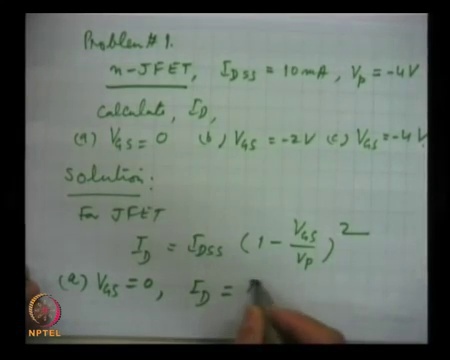 Problem # 1.
n-JFET, I_DSS = 10mA, V_p = -4V
Calculate, I_D,
(a) V_GS = 0 (b) V_GS = -2V (c) V_GS = -4V.
Solution:
For JFET
I_D = I_DSS (1 - V_GS/V_p)^2
(a) V_GS = 0, I_D =
NPTEL